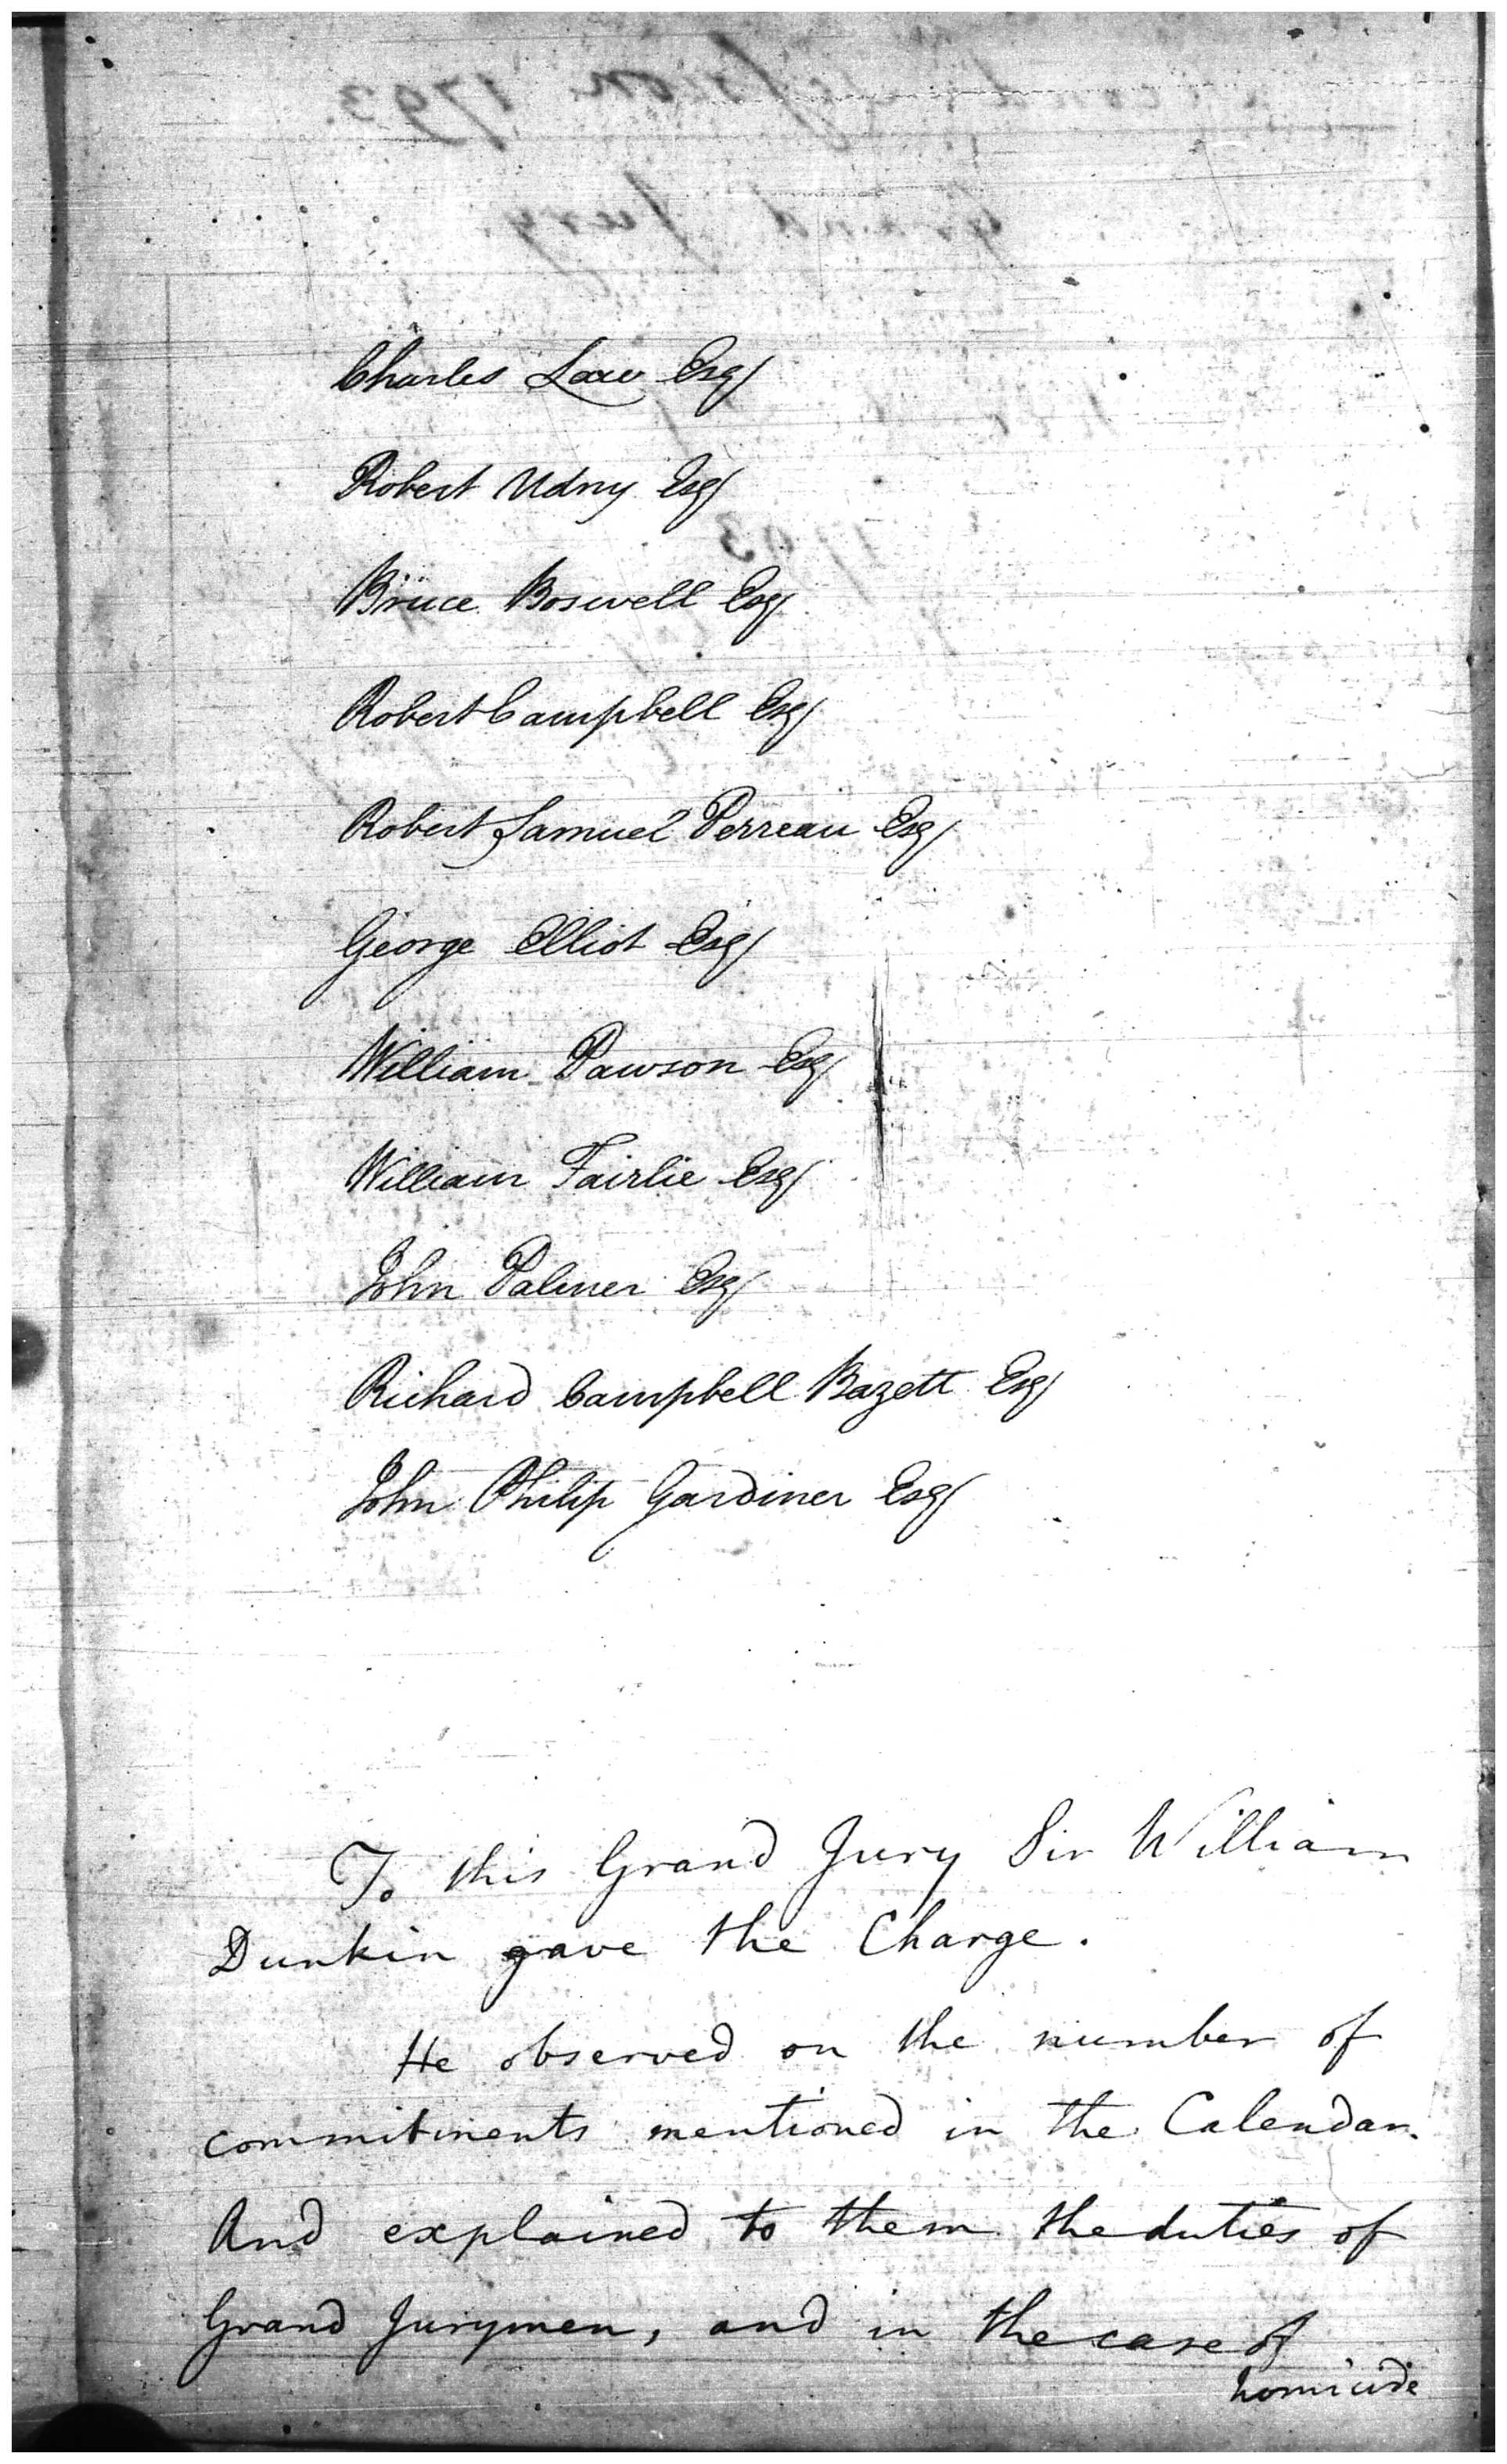 Charles Law Esq
Robert Udny Esq
Bruce Boswell Esq
Robert Campbell Esq
Robert Samuel Perreau Esq
George Elliot Esq
William Pawson Esq
William Fairlie Esq
John Palmer Esq
Richard Campbell Bazett Esq
John Philip Gardiner Esq
To this Grand Jury Sir William
Dunkin gave the Charge.
He observed on the number of
commitments mentioned in the Calendar.
And explained to them the duties of
Grand Jurymen, and in the case of
homicide